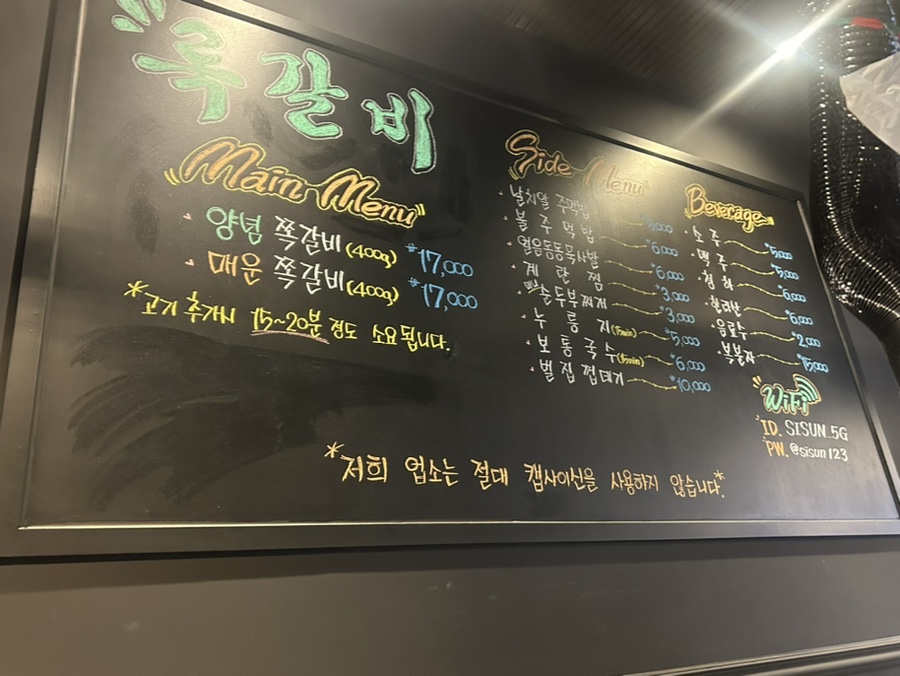 룩갈비
Main Menu
양념 쪽갈비 (400g) ₩17,000
매운 쪽갈비 (400g) ₩17,000
*고기 추가시 15~20분 정도 소요됩니다.
Side Menu
날치알 주먹밥 5,000
불주먹밥 ₩6,000
얼음동동묵사발 ₩6,000
계란찜 ₩3,000
순두부찌개 ₩3,000
누룽지 (15min) ₩5,000
보통국수 (15min) ₩6,000
벌집껍데기 ₩10,000
Beverage
소주 ₩5,000
맥주 ₩5,000
청하 ₩6,000
한라산 ₩6,000
음료수 ₩2,000
복분자 ₩15,000
WiFi
ID. SISUN_5G
PW. @sisun123
*저희 업소는 절대 캡사이신을 사용하지 않습니다.*